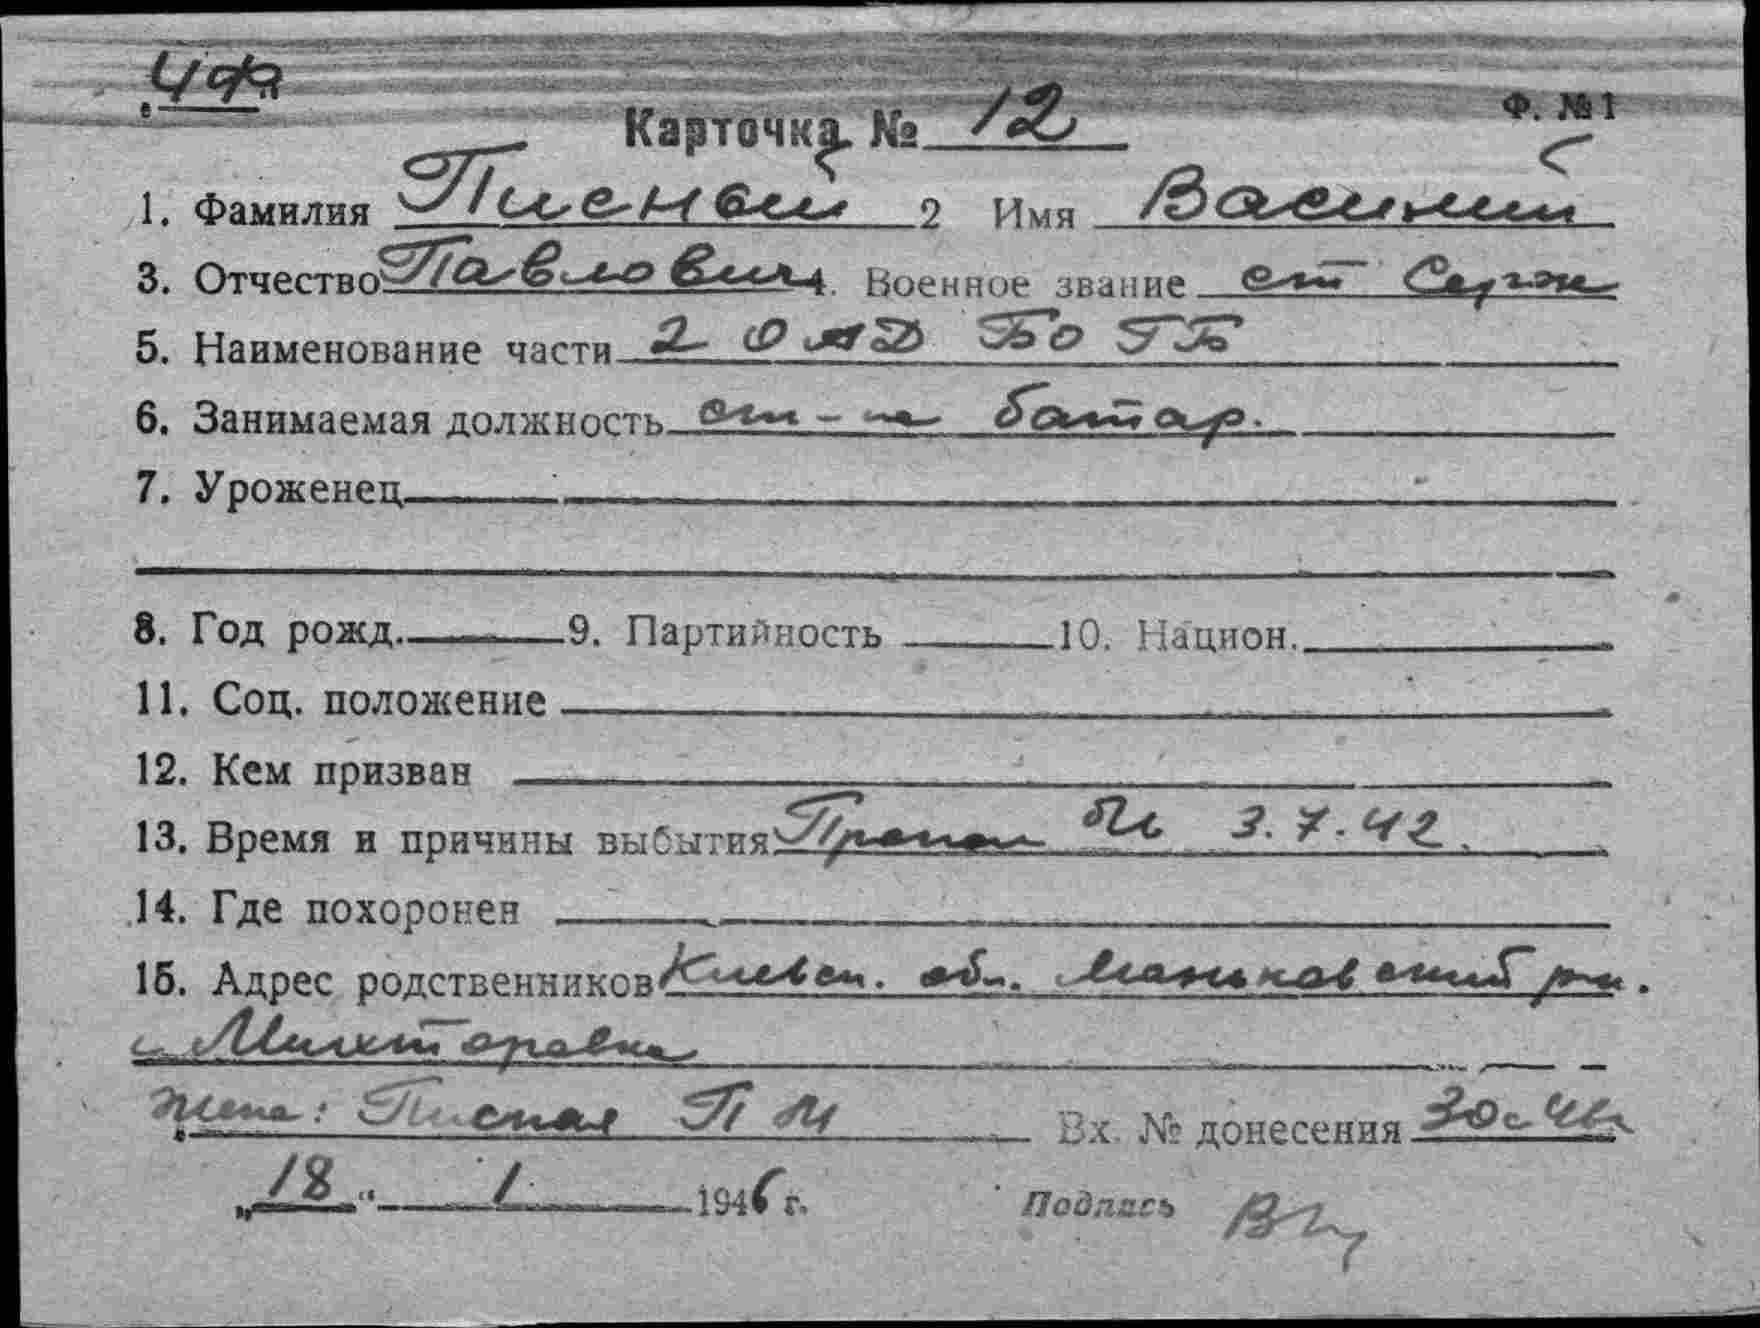 ЧФ
Карточка № 12 Ф. № 1
1. Фамилия Писный 2 Имя Василий
3. Отчество Павлович 4. Военное звание ст Серж
5. Наименование части 2 ОАД БО ГБ
6. Занимаемая должность батар.
7. Уроженец
8. Год рожд. 9. Партийность 10. Национ.
11. Соц. положение
12. Кем призван
13. Время и причины выбытия Пропал 3.7.42.
14. Где похоронен
15. Адрес родственников Киевск. обл. Маньковский р-н.
Жена: Писная П М Вх. № донесения
„18" 1 1946 г. Подпись